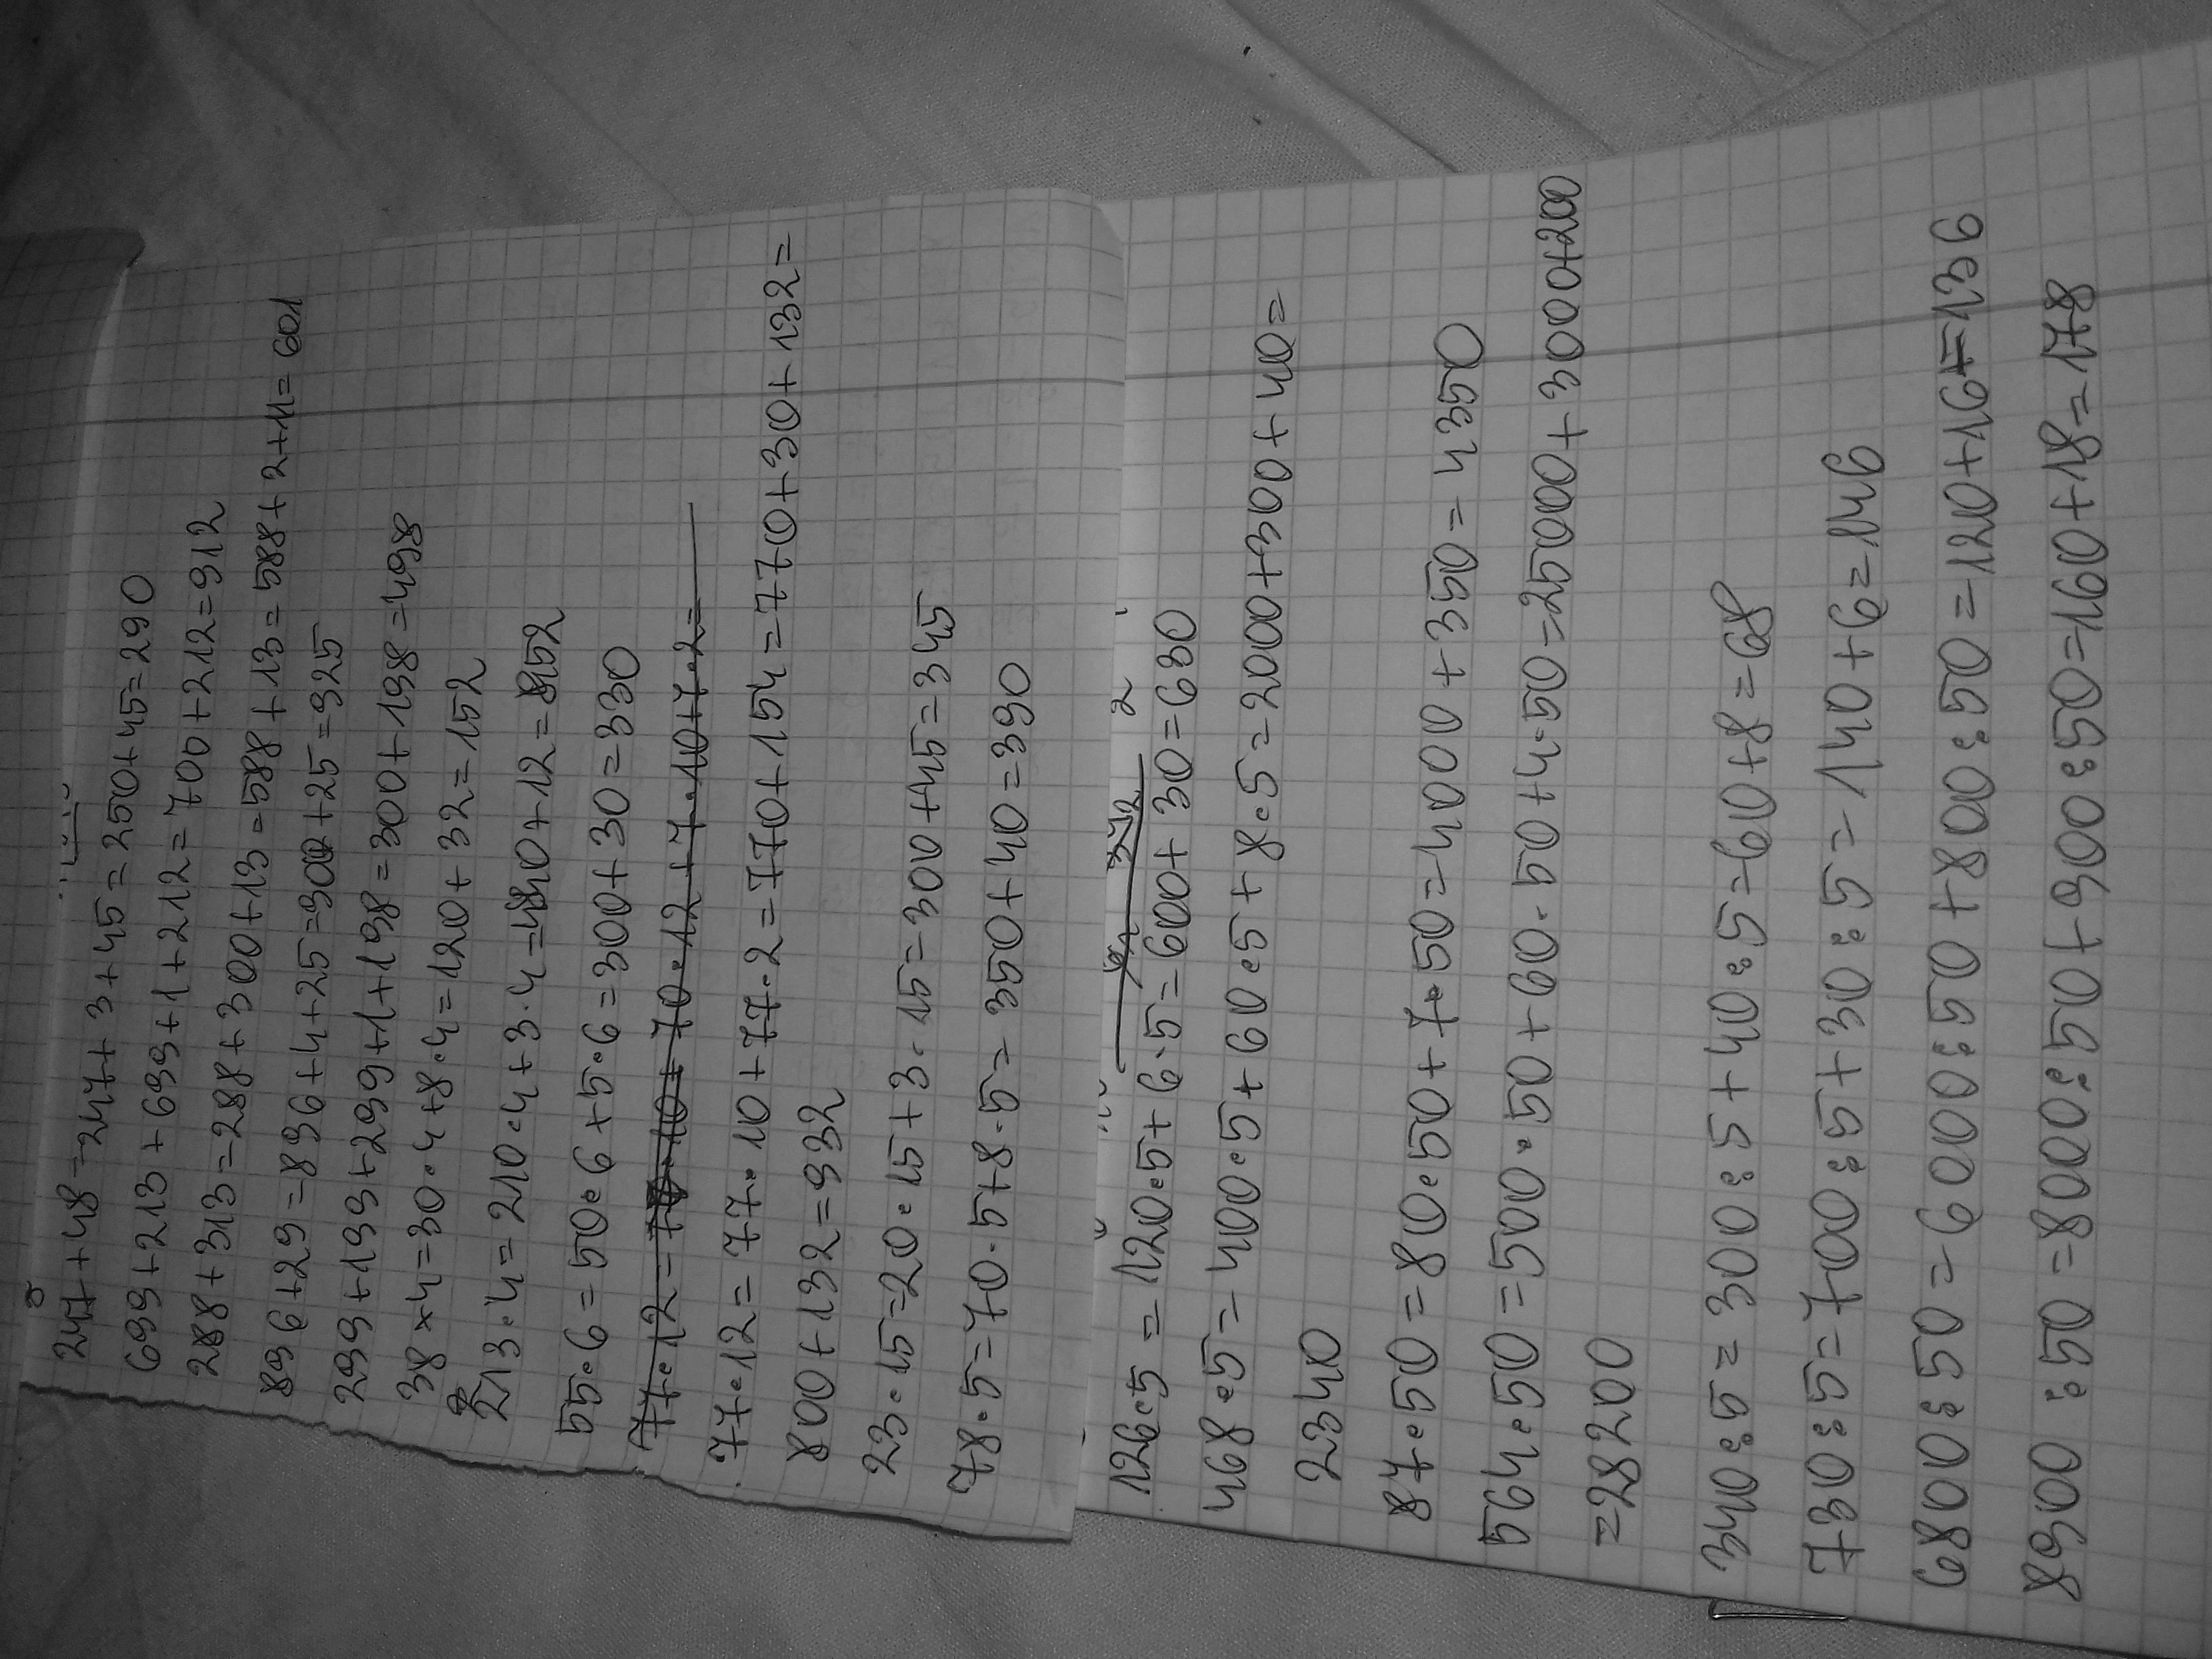 247+48=247+3+45=250+45=290
699+213+699+1+212=700+212=912
288+313=288+300+13=588+13=588+2+11=601
896+29=896+4+25=900+25=925
299+199+299+1+198=300+198=498
38×4=30·4+8·4=120+32=152
213·4=210·4+3·4=840+12=852
55·6=50·6+5·6=300+30=330
77·12=77·10+77·2=770+154=770+30+132=
800+132=932
23·15=20·15+3·15=300+45=345
78·5=70·5+8·5=350+40=390
126·5=120·5+6·5=600+30=630
468·5=400·5+60·5+8·5=2000+300+40=
2340
87·50=80·50+7·50=4000+350=4350
564·50=500·50+60·50+4·50=25000+3000+200
=28200
340:5=300:5+40:5=60+8=68
730:5=700:5+30:5=140+6=146
6800:50=6000:50+800:50=120+16=136
8900:50=8000:50+900:50=160+18=178